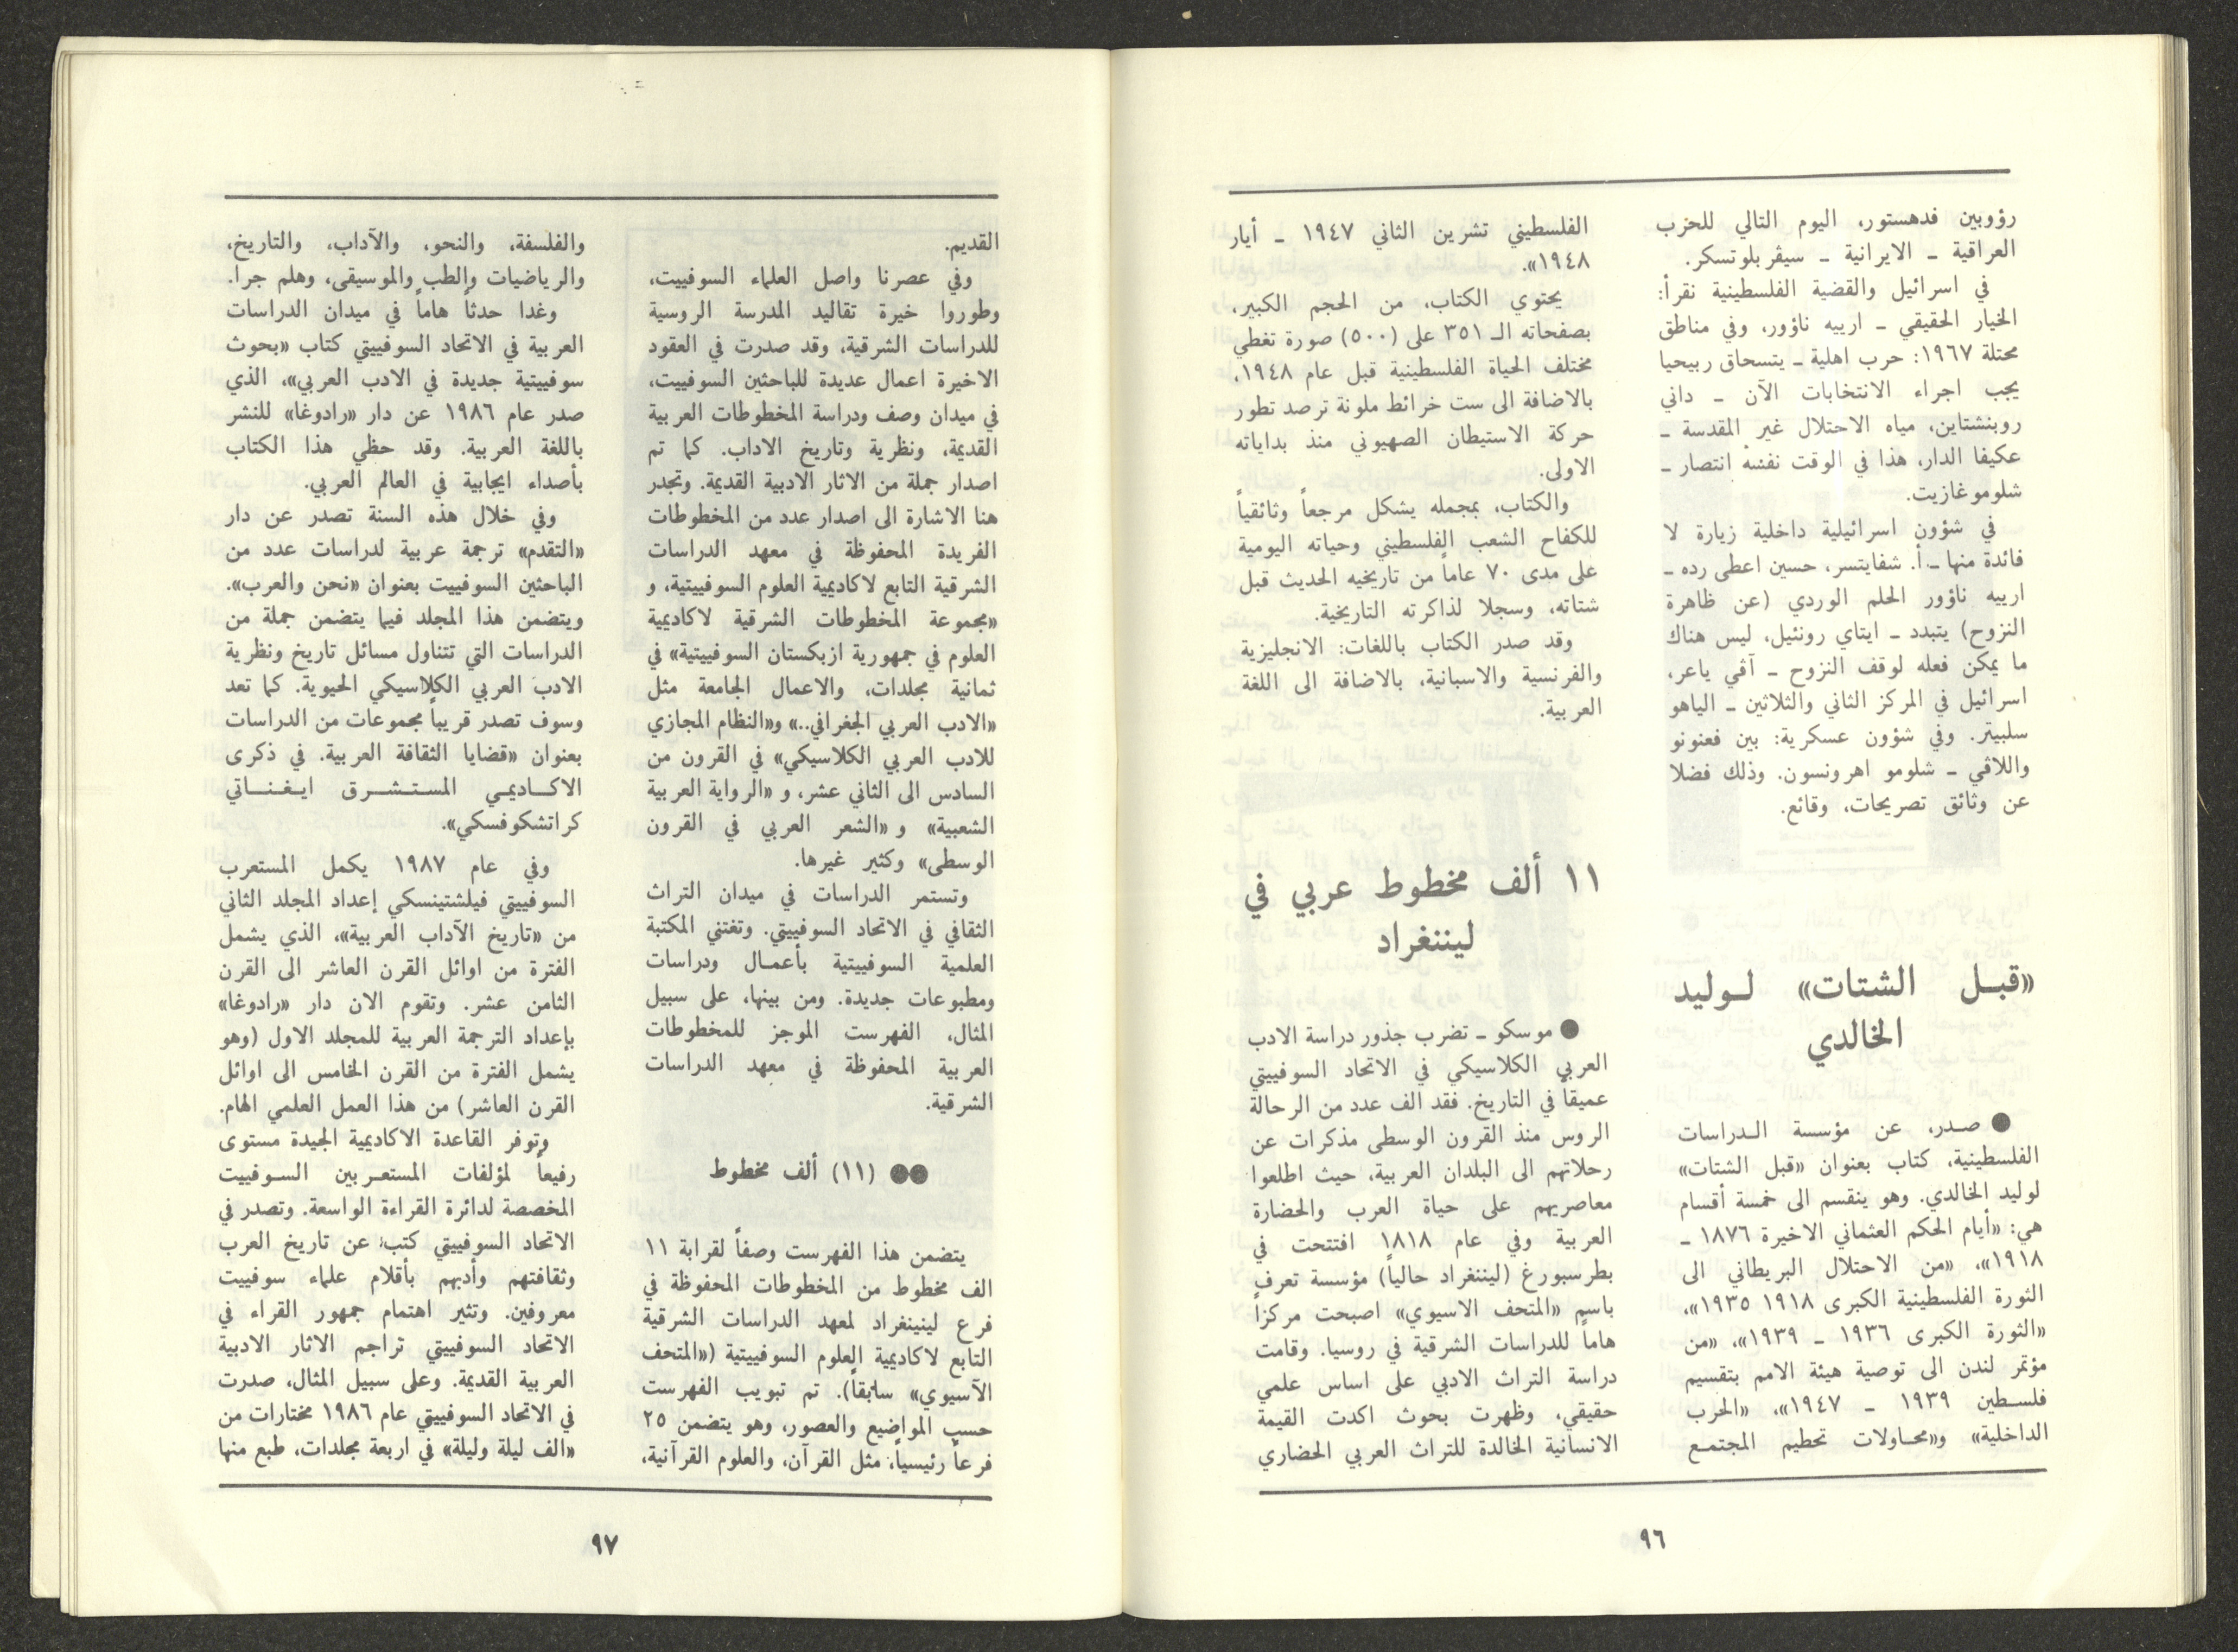 رؤوبين فدهستور، اليوم التالي للحزب
العراقية ـ الايرانية ـ سيڤر بلوتسكر.
في اسرائيل والقضية الفلسطينية نقرأ:
الخيار الحقيقي ـ ارييه ناؤور، وفي مناطق
محتلة ١٩٦٧: حرب اهلية ـ يتسحاق ربيحيا
يجب اجراء الانتخابات الآن ـ داني
روبنشتاين، مياه الاحتلال غير المقدسة ـ
عكيفا الدار، هذا في الوقت نفسه انتصار ـ
شلومو غازيت.
في شؤون اسرائيلية داخلية زيارة لا
فائدة منها ـ أ. شفايتسر، حسين اعطى رده ـ
ارييه ناؤور الحلم الوردي (عن ظاهرة
النزوح) يتبدد ـ ايتاي رونئيل، ليس هناك
ما يمكن فعله لوقف النزوح ـ آڤي ياعر،
اسرائيل في المركز الثاني والثلاثين ـ الياهو
سلبيتر. وفي شؤون عسكرية: بين فعنونو
واللاڤي ـ شلومو اهرونسون. وذلك فضلا
عن وثائق تصريحات، وقائع.
«قبـل الشتات» لـوليد
الخالدي
● صـدر، عن مؤسسة الـدراسات
الفلسطينية، كتاب بعنوان «قبل الشتات»
لوليد الخالدي. وهو ينقسم الى خمسة أقسام
هي: «أيام الحكم العثماني الاخيرة ١٨٧٦ ـ
١٩١٨»، «من الاحتلال البريطاني الى
الثورة الفلسطينية الكبرى ١٩١٨ ١٩٣٥»،
«الثورة الكبرى ١٩٣٦ ـ ١٩٣٩»، «من
مؤتمر لندن الى توصية هيئة الامم بتقسيم
فلسـطين ١٩٣٩ ـ ١٩٤٧»، «الحرب
الداخلية» و«محـاولات تحطيم المجتمـع
الفلسطيني تشرين الثاني ١٩٤٧ ـ أيار
١٩٤٨».
يحتوي الكتاب، من الحجم الكبير،
بصفحاته الـ ٣٥١ على (٥٠٠) صورة تغطي
مختلف الحياة الفلسطينية قبل عام ١٩٤٨،
بالاضافة الى ست خرائط ملونة ترصد تطور
حركة الاستيطان الصهيوني منذ بداياته
الاولى.
والكتاب، بمجمله يشكل مرجعاً وثائقياً
للكفاح الشعب الفلسطيني وحياته اليومية
على مدى ٧٠ عاماً من تاريخيه الحديث قبل
شتاته، وسجلا لذاكرته التاريخية.
وقد صدر الكتاب باللغات: الانجليزية
والفرنسية والاسبانية، بالاضافة الى اللغة
العربية.
١١ ألف مخطوط عربي في
ليننغراد
● موسكو ـ تضرب جذور دراسة الادب
العربي الكلاسيكي في الاتحاد السوفييتي
عميقاً في التاريخ. فقد الف عدد من الرحالة
الروس منذ القرون الوسطى مذكرات عن
رحلاتهم الى البلدان العربية، حيث اطلعوا
معاصريهم على حياة العرب والحضارة
العربية وفي عام ١٨١٨ افتتحت في
بطرسبورغ (ليننغراد حالياً) مؤسسة تعرف
باسم «المتحف الاسيوي» اصبحت مركزاً
هاماً للدراسات الشرقية في روسيا. وقامت
دراسة التراث الادبي على اساس علمي
حقيقي، وظهرت بحوث اكدت القيمة
الانسانية الخالدة للتراث العربي الحضاري
٩٦
القديم.
وفي عصرنا واصل العلماء السوفييت،
وطوروا خيرة تقاليد المدرسة الروسية
للدراسات الشرقية، وقد صدرت في العقود
الاخيرة اعمال عديدة للباحثين السوفييت،
في ميدان وصف ودراسة المخطوطات العربية
القديمة، ونظرية وتاريخ الاداب. كما تم
اصدار جملة من الاثار الادبية القديمة. وتجدر
هنا الاشارة الى اصدار عدد من المخطوطات
الفريدة المحفوظة في معهد الدراسات
الشرقية التابع لاكاديمية العلوم السوفييتية، و
«مجموعة المخطوطات الشرقية لاكاديمية
العلوم في جمهورية ازبكستان السوفييتية» في
ثمانية مجلدات، والاعمال الجامعة مثل
«الادب العربي الجغرافي..» و«النظام المجازي
للادب العربي الكلاسيكي» في القرون من
السادس الى الثاني عشر، و «الرواية العربية
الشعبية» و «الشعر العربي في القرون
الوسطى» وكثير غيرها.
وتستمر الدراسات في ميدان التراث
الثقافي في الاتحاد السوفييتي. وتغتني المكتبة
العلمية السوفييتية بأعمـال ودراسات
ومطبوعات جديدة. ومن بينها، على سبيل
المثال، الفهرست الموجز للمخطوطات
العربية المحفوظة في معهد الدراسات
الشرقية.
●● (١١) ألف مخطوط
يتضمن هذا الفهرست وصفاً لقرابة ١١
الف مخطوط من المخطوطات المحفوظة في
فرع لينينغراد لمعهد الدراسات الشرقية
التابع لاكاديمية العلوم السوفييتية («المتحف
الآسيوي» سابقاً). تم تبويب الفهرست
حسب المواضيع والعصور، وهو يتضمن ٢٥
فرعاً رئيسياً، مثل القرآن، والعلوم القرآنية،
والفلسفة، والنحو، والآداب، والتاريخ،
والرياضيات والطب والموسيقى، وهلم جرا.
وغدا حدثاً هاماً في ميدان الدراسات
العربية في الاتحاد السوفييتي كتاب «بحوث
سوفييتية جديدة في الادب العربي»، الذي
صدر عام ١٩٨٦ عن دار «رادوغا» للنشر
باللغة العربية. وقد حظي هذا الكتاب
بأصداء ايجابية في العالم العربي.
وفي خلال هذه السنة تصدر عن دار
«التقدم» ترجمة عربية لدراسات عدد من
الباحثين السوفييت بعنوان «نحن والعرب».
ويتضمن هذا المجلد فيما يتضمن جملة من
الدراسات التي تتناول مسائل تاريخ ونظرية
الادب العربي الكلاسيكي الحيوية. كما تعد
وسوف تصدر قريباً مجموعات من الدراسات
بعنوان «قضايا الثقافة العربية. في ذكرى
الاكـاديمـي المستـشـرق ايـغـنـاتي
كراتشكوفسكي».
وفي عام ١٩٨٧ يكمل المستعرب
السوفييتي فيلشتينسكي إعداد المجلد الثاني
من «تاريخ الآداب العربية»، الذي يشمل
الفترة من اوائل القرن العاشر الى القرن
الثامن عشر. وتقوم الان دار «رادوغا»
بإعداد الترجمة العربية للمجلد الاول (وهو
يشمل الفترة من القرن الخامس الى اوائل
القرن العاشر) من هذا العمل العلمي الهام.
وتوفر القاعدة الاكاديمية الجيدة مستوى
رفيعاً لمؤلفات المستعـربين السـوفييت
المخصصة لدائرة القراءة الواسعة. وتصدر في
الاتحاد السوفييتي كتب عن تاريخ العرب
وثقافتهم وأدبهم بأقلام علماء سوفييت
معروفين. وتثير اهتمام جمهور القراء في
الاتحاد السوفييتي تراجم الاثار الادبية
العربية القديمة. وعلى سبيل المثال، صدرت
في الاتحاد السوفييتي عام ١٩٨٦ مختارات من
«الف ليلة وليلة» في اربعة مجلدات، طبع منها
٩٧